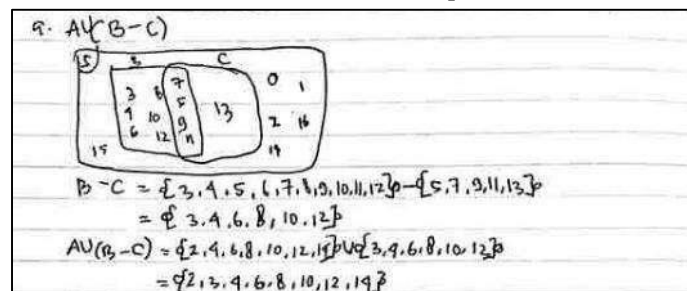 a. AU(B-C)
S B C
3 8 7 0 1
4 10 5 13
6 12 9 2 16
11
15 14
B-C = {3,4,5,6,7,8,9,10,11,12}-{5,7,9,11,13}
= {3,4,6,8,10,12}
AU(B-C) = {2,4,6,8,10,12,14}U{3,4,6,8,10,12}
= {2,3,4,6,8,10,12,14}